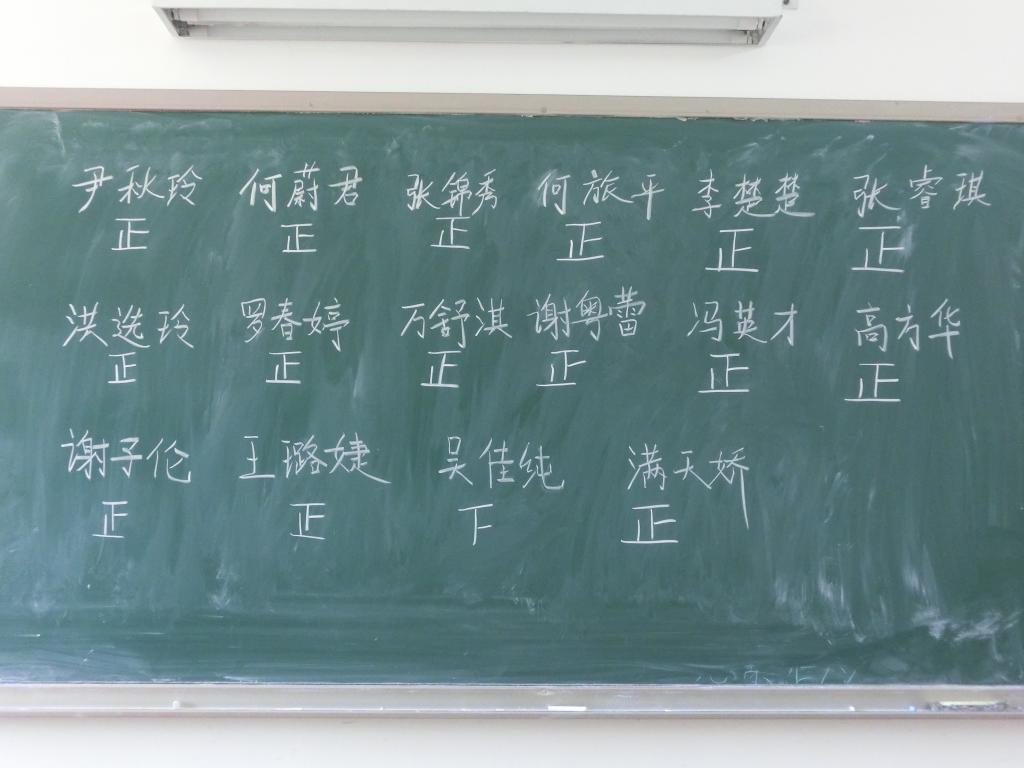 尹秋玲 何蔚君 张锦秀 何旅平 李楚楚 张睿琪
正 正 正 正 正 正
洪选玲 罗春婷 万舒淇 谢粤蕾 冯英才 高方华
正 正 正 正 正 正
谢子伦 王璐婕 吴佳纯 满天娇
正 正 下 正